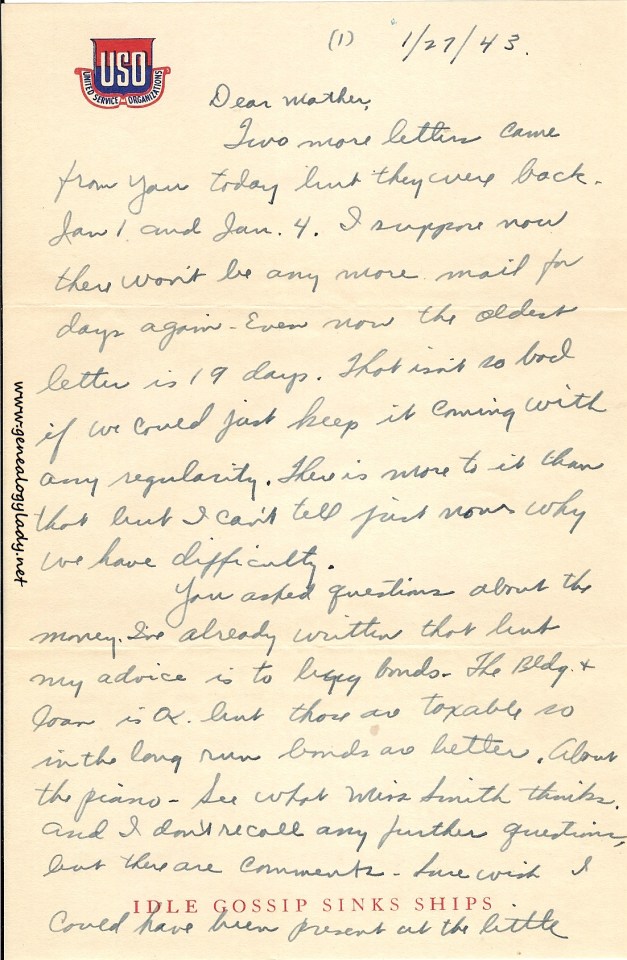 (1) 1/27/43.
USO
UNITED SERVICE ORGANIZATIONS
Dear Mother,
Two more letters came
from you today but they were back.
Jan 1 and Jan. 4. I suppose now
there won't be any more mail for
days again - Even now the oldest
letter is 19 days. That isn't so bad
if we could just keep it coming with
any regularity. There is more to it than
that but I can't tell just now why
we have difficulty.
You asked questions about the
money. I've already written that but
my advice is to buy bonds - The Bldg. +
loan is O.K. but those are taxable so
in the long run bonds are better. About
the piano - See what Miss Smith thinks.
and I don't recall any further questions,
but there are comments - Sure wish I
IDLE GOSSIP SINKS SHIPS
could have been present at the little
www.genealogylady.net